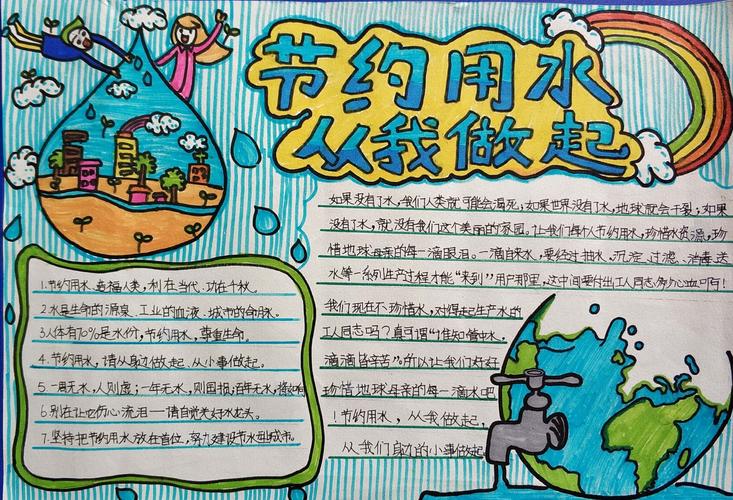 节约用水
从我做起
如果没有了水，我们人类就可能会渴死；如果世界没有了水，地球就会干裂；如果
没有了水，就没有我们这个美丽的家园。让我们每个人节约用水，珍惜水资源，珍
惜地球母亲的每一滴眼泪。一滴自来水，要经过抽水、沉淀、过滤、消毒、送
水等一系列生产过程才能“来到”用户那里，这中间要付出工人同志
我们现在不珍惜水，对得起生产水的
工人同志吗？真可谓“谁知管中水，
滴滴皆辛苦”。所以让我们好好
珍惜地球母亲的每一滴水吧
！节约用水，从我做起，
从我们身边的小事做起
1.节约用水、造福人类，利在当代、功在千秋。
2.水是生命的源泉、工业的血液、城市的命脉。
3.人体有70%是水份，节约用水，尊重生命。
4.节约用水，请从身边做起、从小事做起。
5.一周无水，人则虚；一年无水，则国损；百年无水，
6.别在让它伤心流泪——请自觉关好水龙头。
7.坚持把节约用水放在首位，努力建设节水型城市。